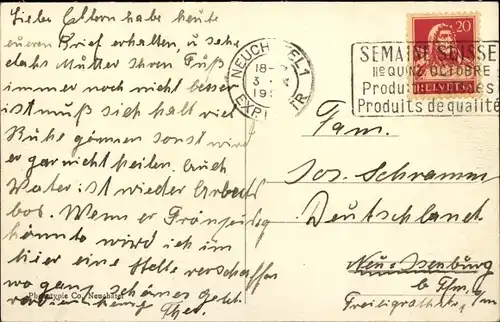 Lieber Eltern habe heute
eueren Brief erhalten, u sehe
dahs Mutter Ihren Fuß
immer noch nicht besser
ist muß sich halt viel
Ruhe gönnen sonst wird
er gar nicht heilen. Auch
Vater ist wieder Arbeits
los. Wenn er
könnte wird ich im
hier eine Stelle verschaffen
wo ganz schönes Geld

Phototypie Co. Neuchâtel
NEUCHATEL 1
18-
3
19
EXP
SEMAINE SUISSE
IIe QUINZ. OCTOBRE
Produits
Produits de qualité
20
HELVETIA
Fam.
Jos. Schramm
Deutschland
Neu-Isenburg
b Ffm,
Freiligrathstr.